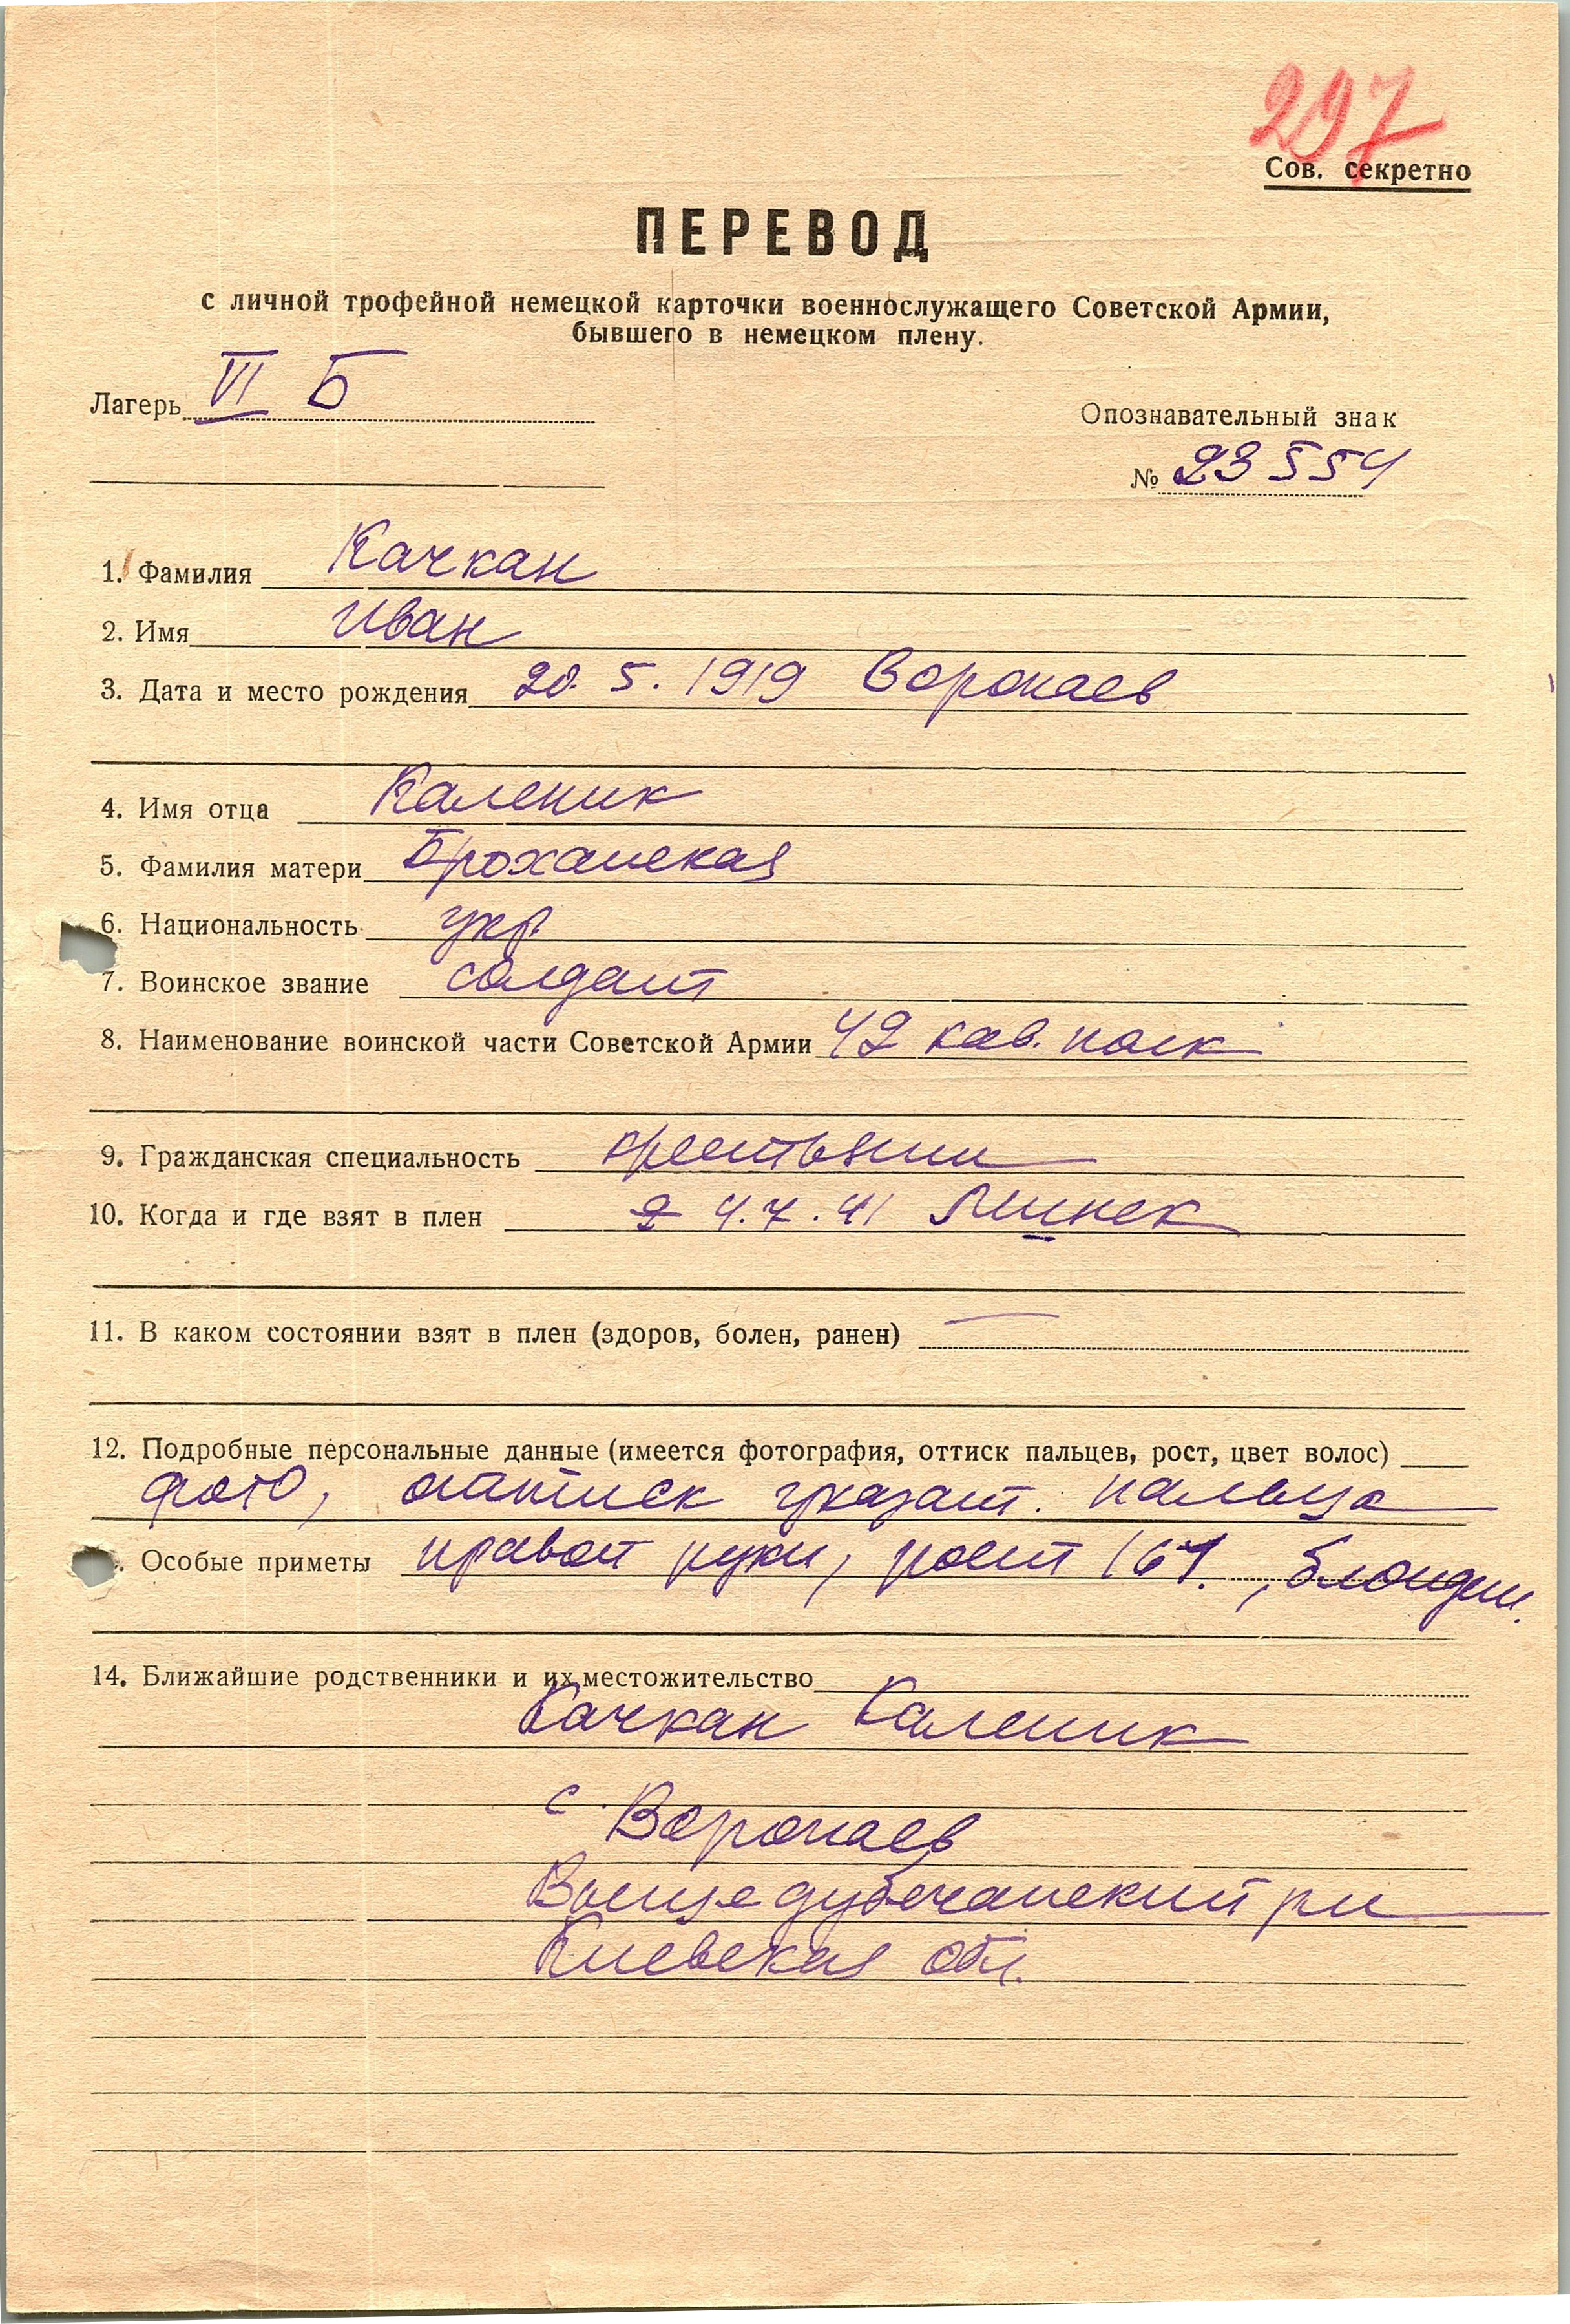 297
Сов. секретно
ПЕРЕВОД
с личной трофейной немецкой карточки военнослужащего Советской Армии,
бывшего в немецком плену.
Лагерь VI Б
Опознавательный знак
№ 23554
1. Фамилия Качкан
2. Имя Иван
3. Дата и место рождения 20.5.1919 Воропаев
4. Имя отца Каленик
5. Фамилия матери Броханская
6. Национальность укр.
7. Воинское звание солдат
8. Наименование воинской части Советской Армии 42 кав. полк
9. Гражданская специальность крестьянин
10. Когда и где взят в плен 4.7.41 Минск
11. В каком состоянии взят в плен (здоров, болен, ранен) —
12. Подробные персональные данные (имеется фотография, оттиск пальцев, рост, цвет волос)
фото, оттиск указат. пальца
Особые приметы правой руки, рост 167, блондин.
14. Ближайшие родственники и их местожительство
Качкан Каленик
с. Воропаев
Вышедубечанский рн
Киевская обл.